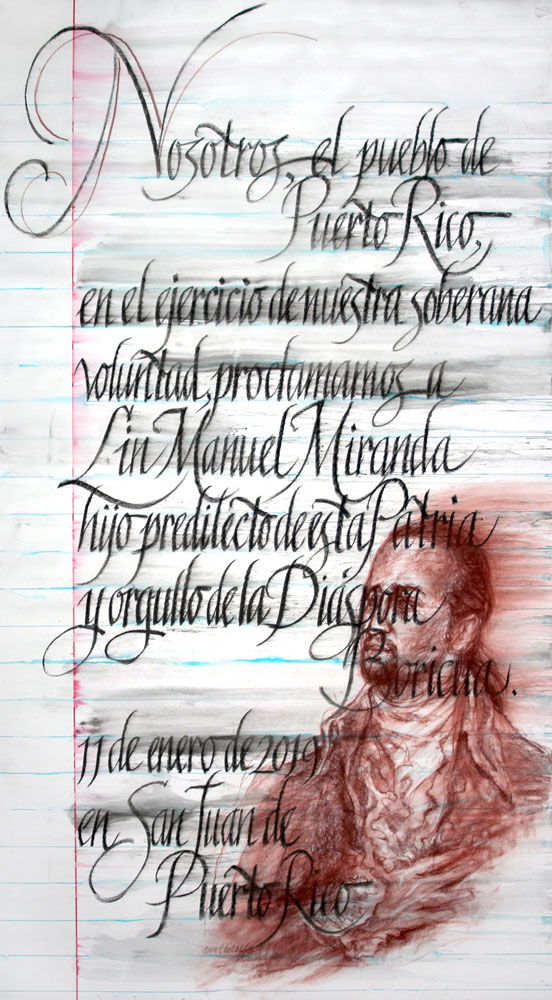 Nosotros, el pueblo de
Puerto Rico,
en el ejercicio de nuestra soberana
voluntad, proclamamos a
Lin Manuel Miranda
hijo predilecto de esta Patria
y orgullo de la Diáspora
Boricua.
11 de enero de 2019
en San Juan de
Puerto Rico